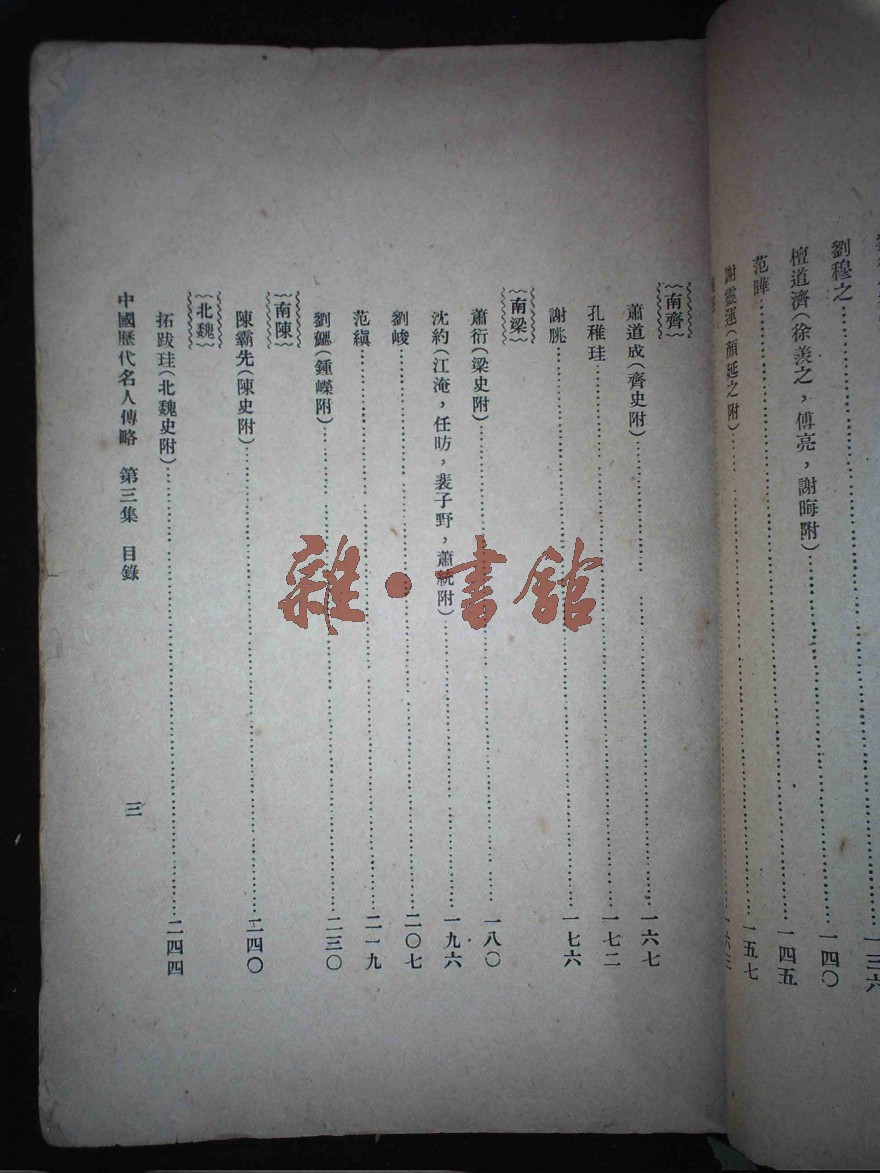 劉穆之……一四〇
檀道濟（徐羨之，傅亮，謝晦附）……一四五
范曄……一五七
謝靈運（顏延之附）……
南齊
蕭道成（齊史附）……一六七
孔稚珪……一七二
謝朓……一七六
南梁
蕭衍（梁史附）……一八〇
沈約（江淹，任昉，裴子野，蕭統附）……一九六
劉峻……二〇七
范縝……二一九
劉勰（鍾嶸附）……二三〇
南陳
陳霸先（陳史附）……二四〇
北魏
拓跋珪（北魏史附）……二四四
中國歷代名人傳略 第三集 目錄
三
雜·書館